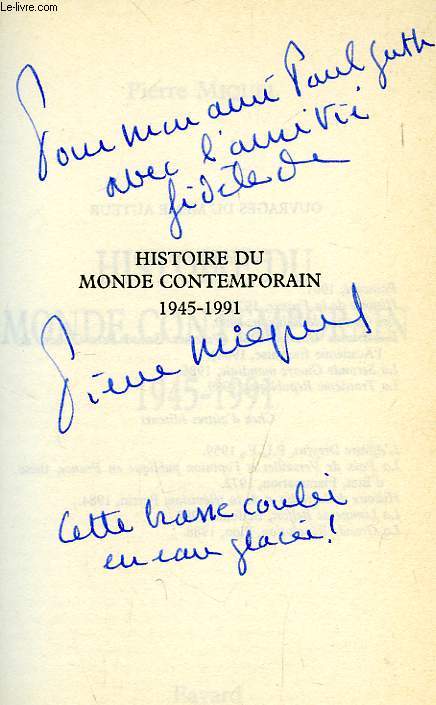 Le-livre.com
Pour mon ami Paul Guth
avec l'amitié
fidèle de
HISTOIRE DU
MONDE CONTEMPORAIN
1945-1991
Pierre Miquel
Cette brasse coulée
en eau glacée!